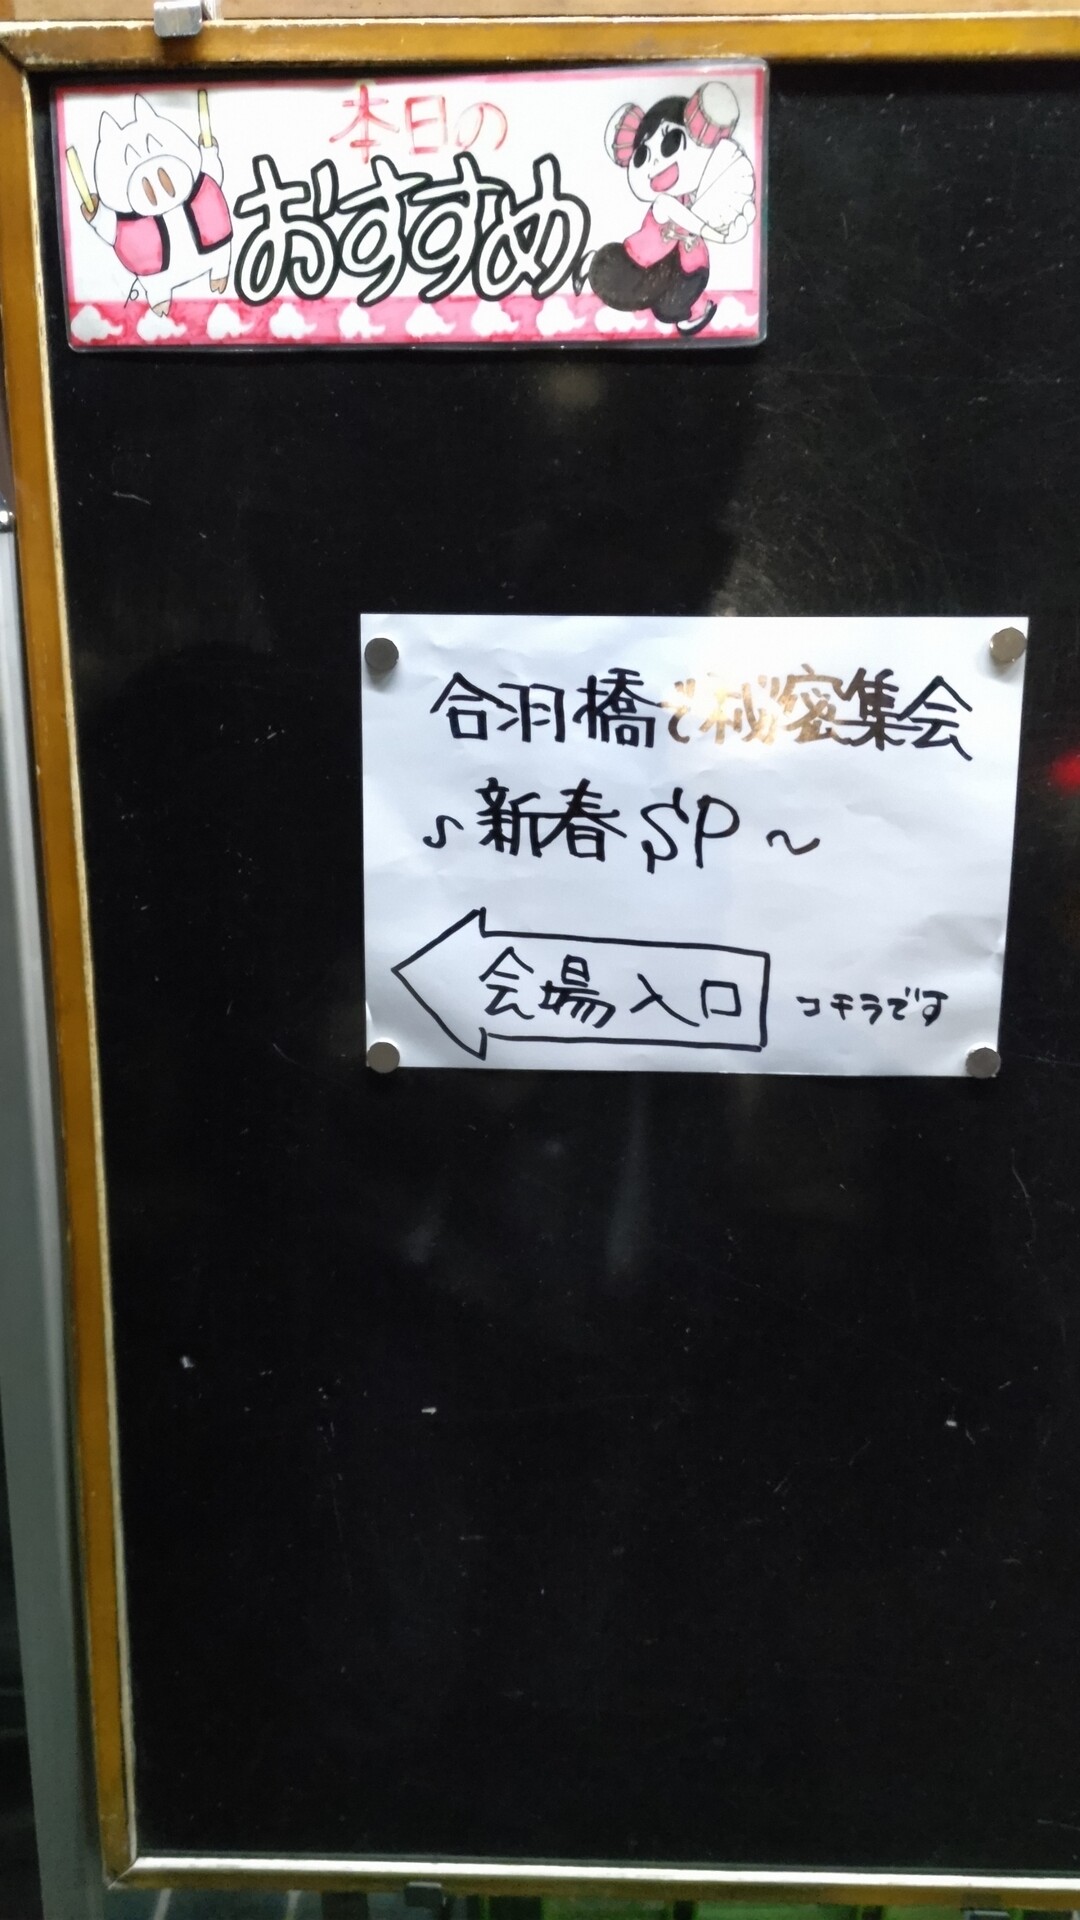 本日の
おすすめ
合羽橋で秘密集会
♪新春SP〜
会場入口 コチラです